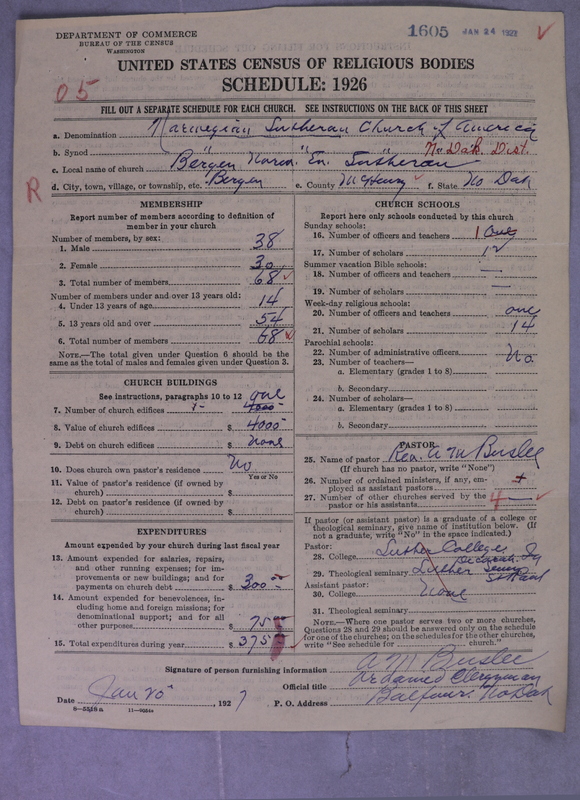 DEPARTMENT OF COMMERCE
BUREAU OF THE CENSUS
WASHINGTON
1605 JAN 24 1927
UNITED STATES CENSUS OF RELIGIOUS BODIES
SCHEDULE: 1926
05
FILL OUT A SEPARATE SCHEDULE FOR EACH CHURCH. SEE INSTRUCTIONS ON THE BACK OF THIS SHEET
a. Denomination Norwegian Lutheran Church of America
b. Synod " " No Dak. Dist.
c. Local name of church Bergen Norw. Ev. Lutheran
R
d. City, town, village, or township, etc. Bergen e. County McHenry f. State No Dak
MEMBERSHIP
Report number of members according to definition of member in your church
Number of members, by sex:
1. Male 38
2. Female 30
3. Total number of members 68
Number of members under and over 13 years old:
4. Under 13 years of age 14
5. 13 years old and over 54
6. Total number of members 68
NOTE.—The total given under Question 6 should be the
same as the total of males and females given under Question 3.
CHURCH BUILDINGS
See instructions, paragraphs 10 to 12
7. Number of church edifices one 4000
8. Value of church edifices $ 4000
9. Debt on church edifices $ none
10. Does church own pastor's residence No
Yes or No
11. Value of pastor's residence (if owned by
church) $
12. Debt on pastor's residence (if owned by
church) $
EXPENDITURES
Amount expended by your church during last fiscal year
13. Amount expended for salaries, repairs,
and other running expenses; for im-
provements or new buildings; and for
payments on church debt $ 300
14. Amount expended for benevolences, in-
cluding home and foreign missions; for
denominational support; and for all
other purposes $ 75
15. Total expenditures during year $ 375
CHURCH SCHOOLS
Report here only schools conducted by this church
Sunday schools:
16. Number of officers and teachers 1 one
17. Number of scholars 12
Summer vacation Bible schools:
18. Number of officers and teachers —
19. Number of scholars —
Week-day religious schools:
20. Number of officers and teachers one
21. Number of scholars 14
Parochial schools:
22. Number of administrative officers No
23. Number of teachers—
a. Elementary (grades 1 to 8)
b. Secondary
24. Number of scholars—
a. Elementary (grades 1 to 8)
b. Secondary
PASTOR
25. Name of pastor Rev. A M Buslee
(If church has no pastor, write "None")
26. Number of ordained ministers, if any, em-
ployed as assistant pastors
27. Number of other churches served by the
pastor or his assistants 4
If pastor (or assistant pastor) is a graduate of a college or
theological seminary, give name of institution below. (If
not a graduate, write "No" in the space indicated.)
Pastor:
28. College Luther College Decorah Ia
29. Theological seminary Luther Semy St Paul
Assistant pastor:
30. College None
31. Theological seminary
NOTE.—Where one pastor serves two or more churches,
Questions 28 and 29 should be answered only on the schedule
for one of the churches; on the schedules for the other churches,
write "See schedule for church."
Signature of person furnishing information A M Buslee
Official title Ordained Clergyman
Date Jan 20, 1927 P. O. Address Balfour. No Dak
8—5519a 11—9384a